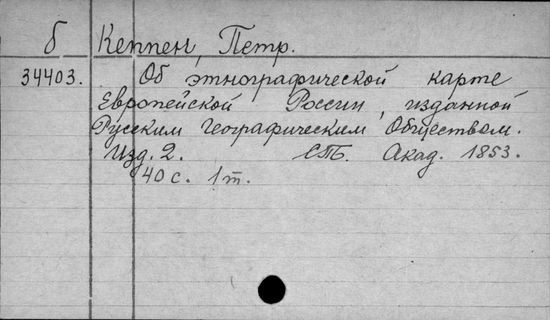 б Кеппен, Петр.
34403. Об этнографической карте
Европейской России, изданной
Русским Географическим Обществом.
Изд. 2. СПБ. Акад. 1853.
40 с. 1 т.